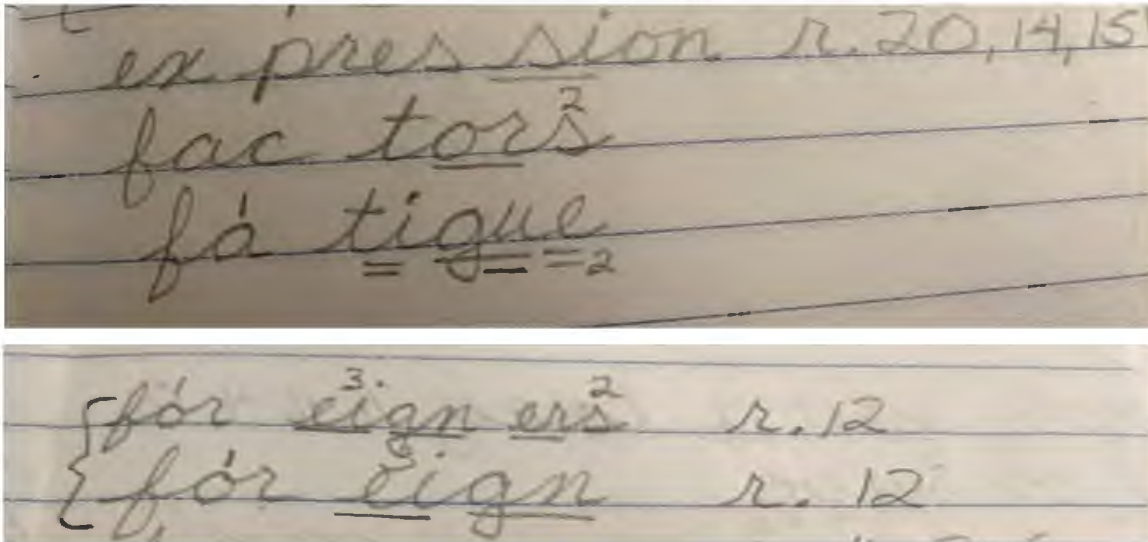 ex pres sion r. 20, 14, 15
fac tors²
fȧ tigue₂
fȯr eign³ ers² r. 12
fȯr eign r. 12